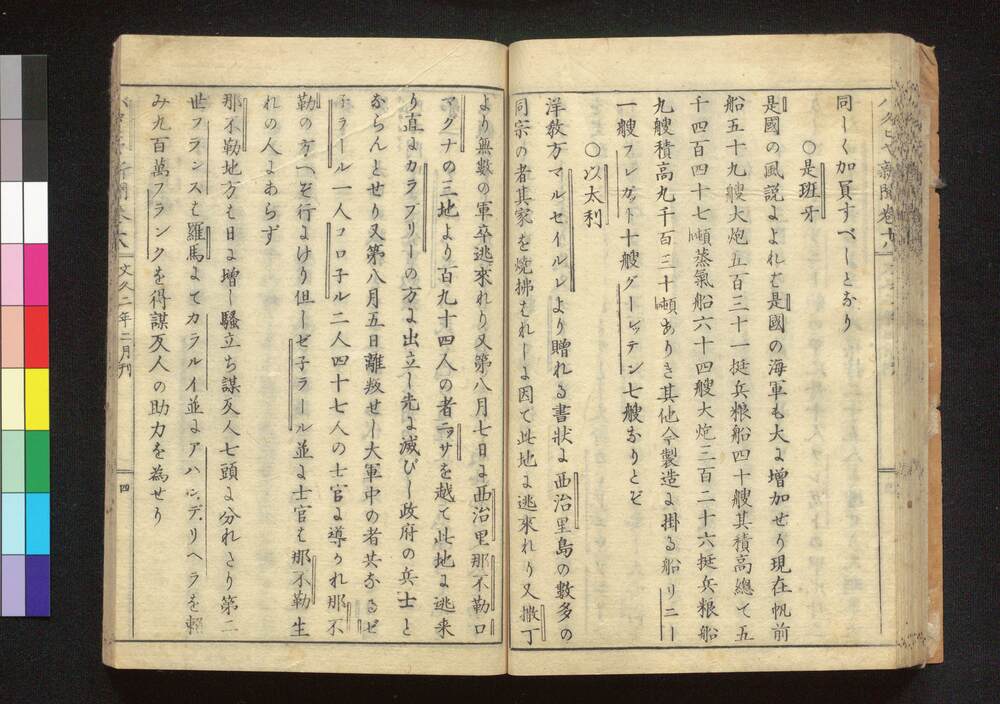 同しく加貢すべしとなり
○是班牙
是國の風説によれば是國の海軍も大に増加せり現在帆前
船五十九艘大炮五百三十一挺兵粮船四十艘其積高總て五
千四百四十七噸蒸氣船六十四艘大炮三百二十六挺兵粮船
九艘積高九千百三十噸あり其他今製造に掛る船リニー
一艘フレガット十艘グーレッテン七艘なりとぞ
○以太利
洋教方マルセイルレより贈れる書状に西治里島の數多の
同宗の者其家を焼拂はれしに因て此地に逃來れり又撒丁
より無數の軍卒逃來れり又第八月七日に西治里那不勒ロ
マグナの三地より百九十四人の者ニッサを越て此地に逃来
り直にカラブリーの方に出立し先に滅びし政府の兵士と
ならんとせり又第八月五日離叛せし大軍中の者共なるぜ
子ラール一人コロ子ル二人四十七人の士官に導かれ那不
勒の方へぞ行にけり但しゼ子ラール並に士官は那不勒生
れの人にあらず
那不勒地方は日に増し騒立ち謀叛人七頭に分れたり第二
世フランスは羅馬にてカラルイ並にアハンデリヘラを
み九百萬フランクを得謀叛人の助力を為せり
文久二年二月刊
四